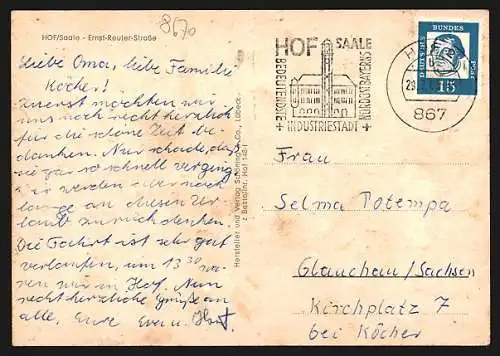 8670
HOF/Saale - Ernst-Reuter-Straße
Liebe Oma, liebe Familie
Köcher!
Zuerst möchten wir
uns noch recht herzlich
für die schöne Zeit be-
danken. Nur schade, daß
sie gar so schnell verging.
Wir werden aber noch
lange an diesen Ur-
laub zurückdenken.
Die Fahrt ist sehr gut
verlaufen, um 13 30 wa-
ren wir in Hof. Nun
recht herzliche Grüße an
alle, Eure Eva u. Horst
Hersteller und Verlag: Schöning & Co., Lübeck
Bestellnr. Hof
HOF SAALE
BEDEUTENDSTE
INDUSTRIESTADT
NORDOSTBAYERNS
H
867
DEUTSCHE
BUNDES
POST
15
Frau
Selma Totempa
Glauchau/Sachsen
Kirchplatz 7
bei Köcher